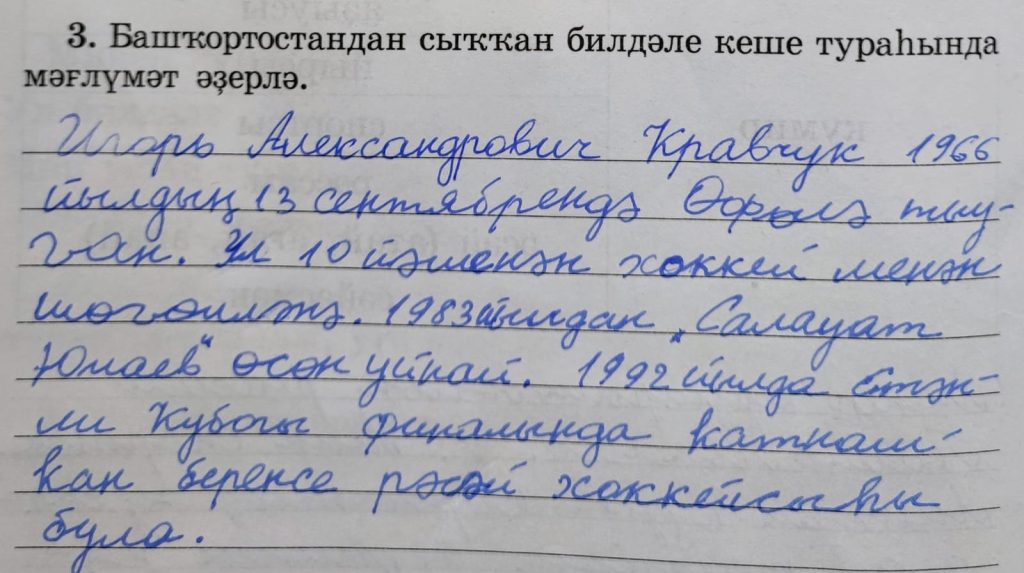 3. Башҡортостандан сыҡҡан билдәле кеше тураһында
мәғлүмәт әҙерлә.
Игорь Александрович Кравчук 1966
йылдың 13 сентябрендә Өфөлә тыу-
ған. Ул 10 йәшенән хоккей менән
шөғөлләнә. 1983 йылдан „Салауат
Юлаев" өсөн уйнай. 1992 йылда Стэн-
ли Кубогы финалында ҡатнаш-
ҡан беренсе рәсәй хоккейсыһы
була.